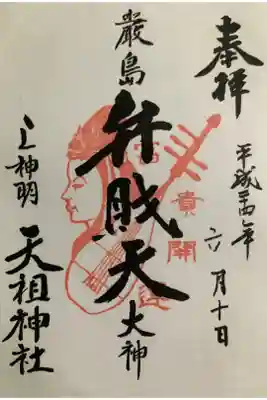 奉拝
平成二十四年
六月十日
嚴島
弁財天
大神
富貴開運
上神明
天祖神社